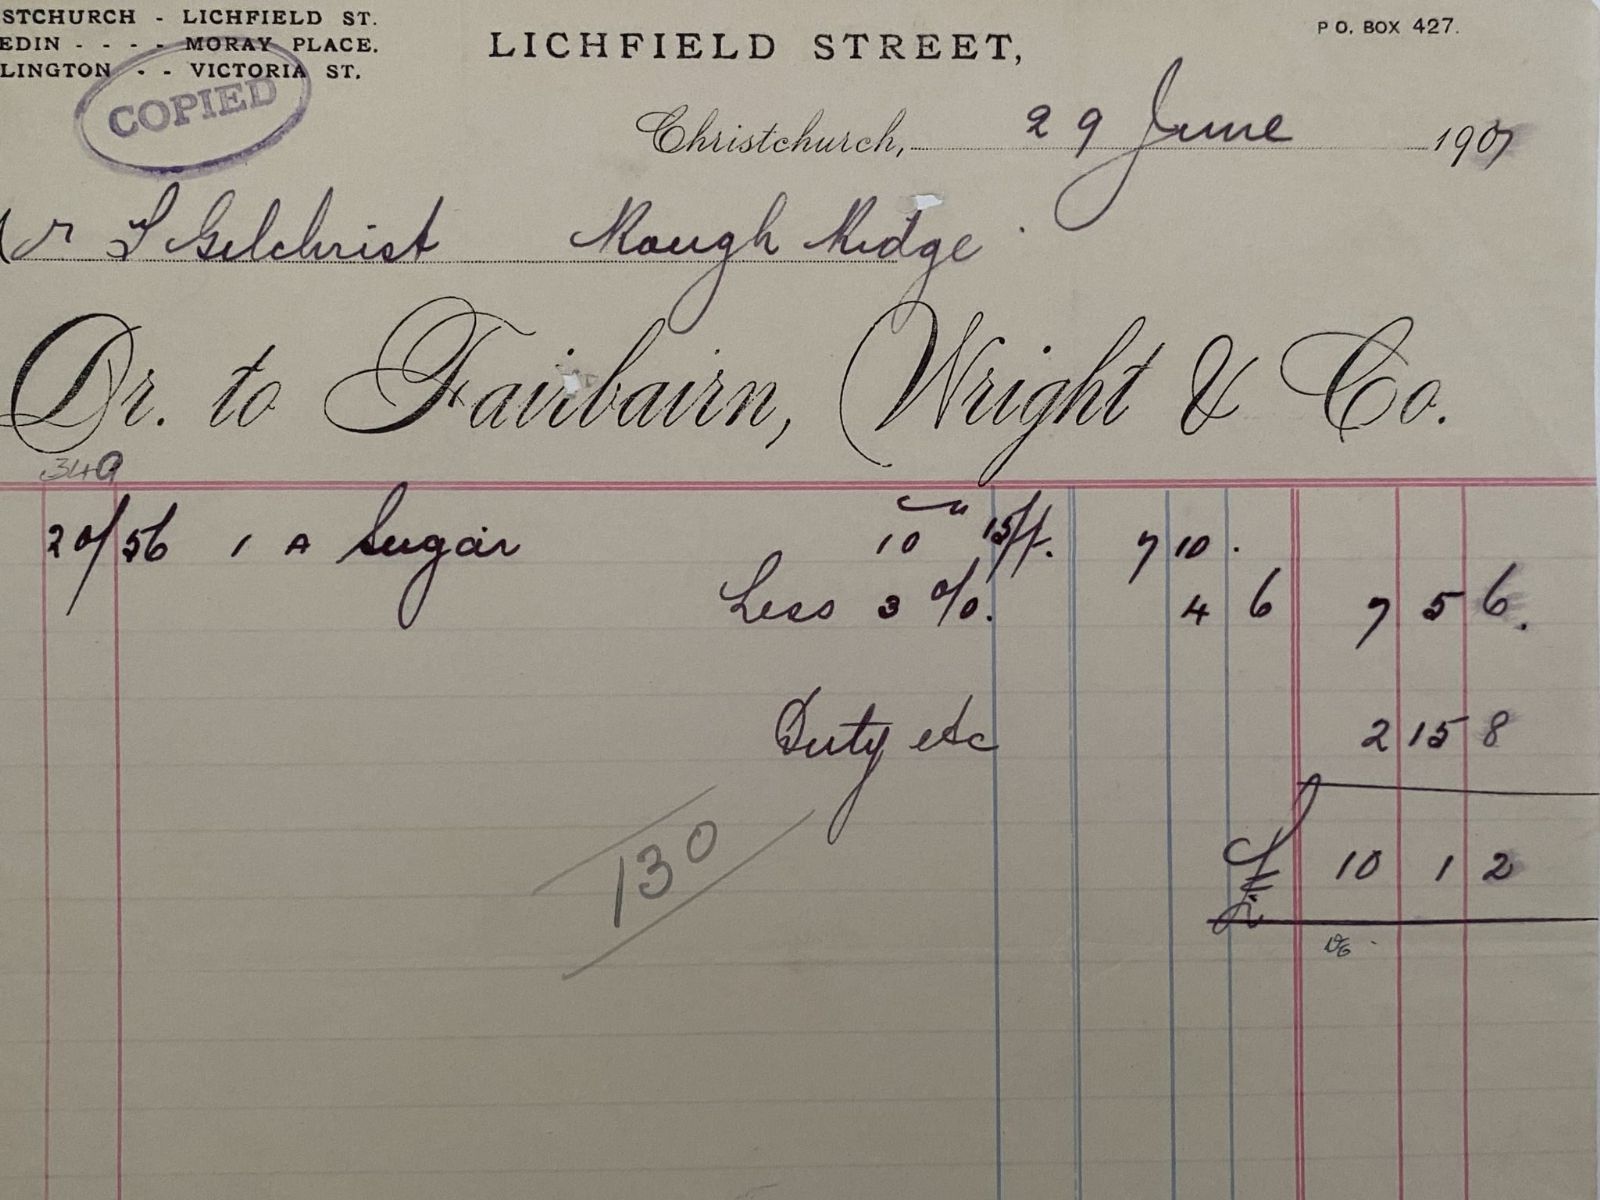 STCHURCH - LICHFIELD ST.
EDIN - - - - MORAY PLACE.
LINGTON - - VICTORIA ST.
COPIED
LICHFIELD STREET,
P O. BOX 427.
Christchurch, 29 June 1907
Mr Gilchrist Rough Ridge
Dr. to Fairbairn, Wright & Co.
349
20/56 1 A Sugar 10 15/ 7 10 .
Less 3 %. 4 6 7 5 6.
Duty etc 2 15 8
£ 10 1 2
130